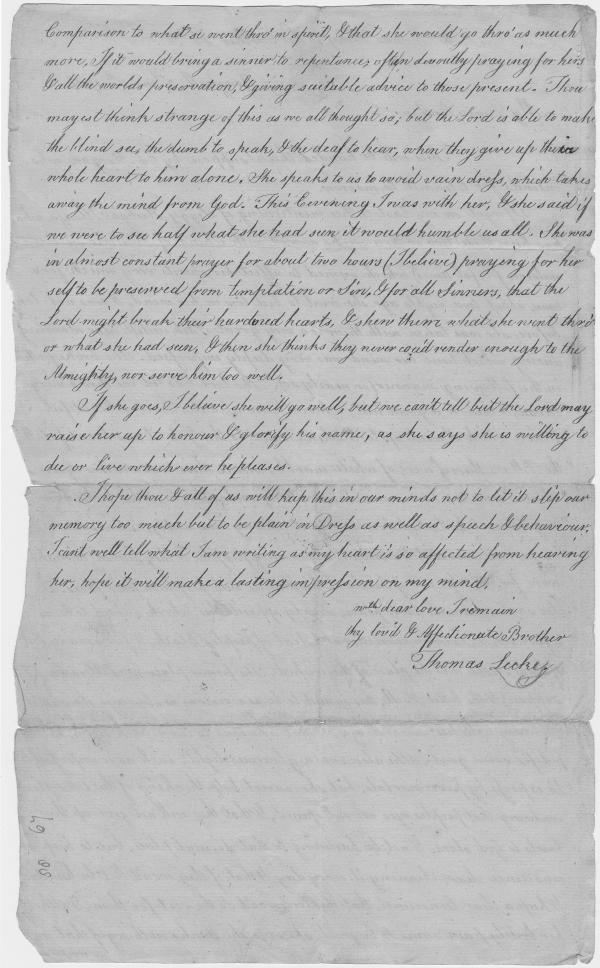 Comparison to what se went thro' in spirit, & that she would go thro' as much
more, If it would bring a sinner to repentance, often devoutly praying for hers
& all the worlds preservation, & giving suitable advice to those present. Thou
mayest think strange of this as we all thought so; but the Lord is able to make
the blind see, the dumb to speak, & the deaf to hear, when they give up their
whole heart to him alone. She speaks to us to avoid vain dress, which takes
away the mind from God. This Evening I was with her, & she said if
we were to see half what she had seen it would humble us all. She was
in almost constant prayer for about two hours (I believe) praying for her
self to be preserved from temptation or Sin, & for all Sinners, that the
Lord might break their hardened hearts, & shew them what she went thro'
or what she had seen, & then she thinks they never cou'd render enough to the
Almighty, nor serve him too well.
If she goes, I believe she will go well, but we can't tell but the Lord may
raise her up to honour & glorify his name, as she says she is willing to
die or live which ever he pleases.
I hope thou & all of us will keep this in our minds not to let it slip our
memory too much but to be plain in Dress as well as speech & behaviour.
I cant well tell what I am writing as my heart is so affected from hearing
her, hope it will make a lasting impression on my mind,
with dear love I remain
thy lov'd & Affectionate Brother
Thomas Leckey
67